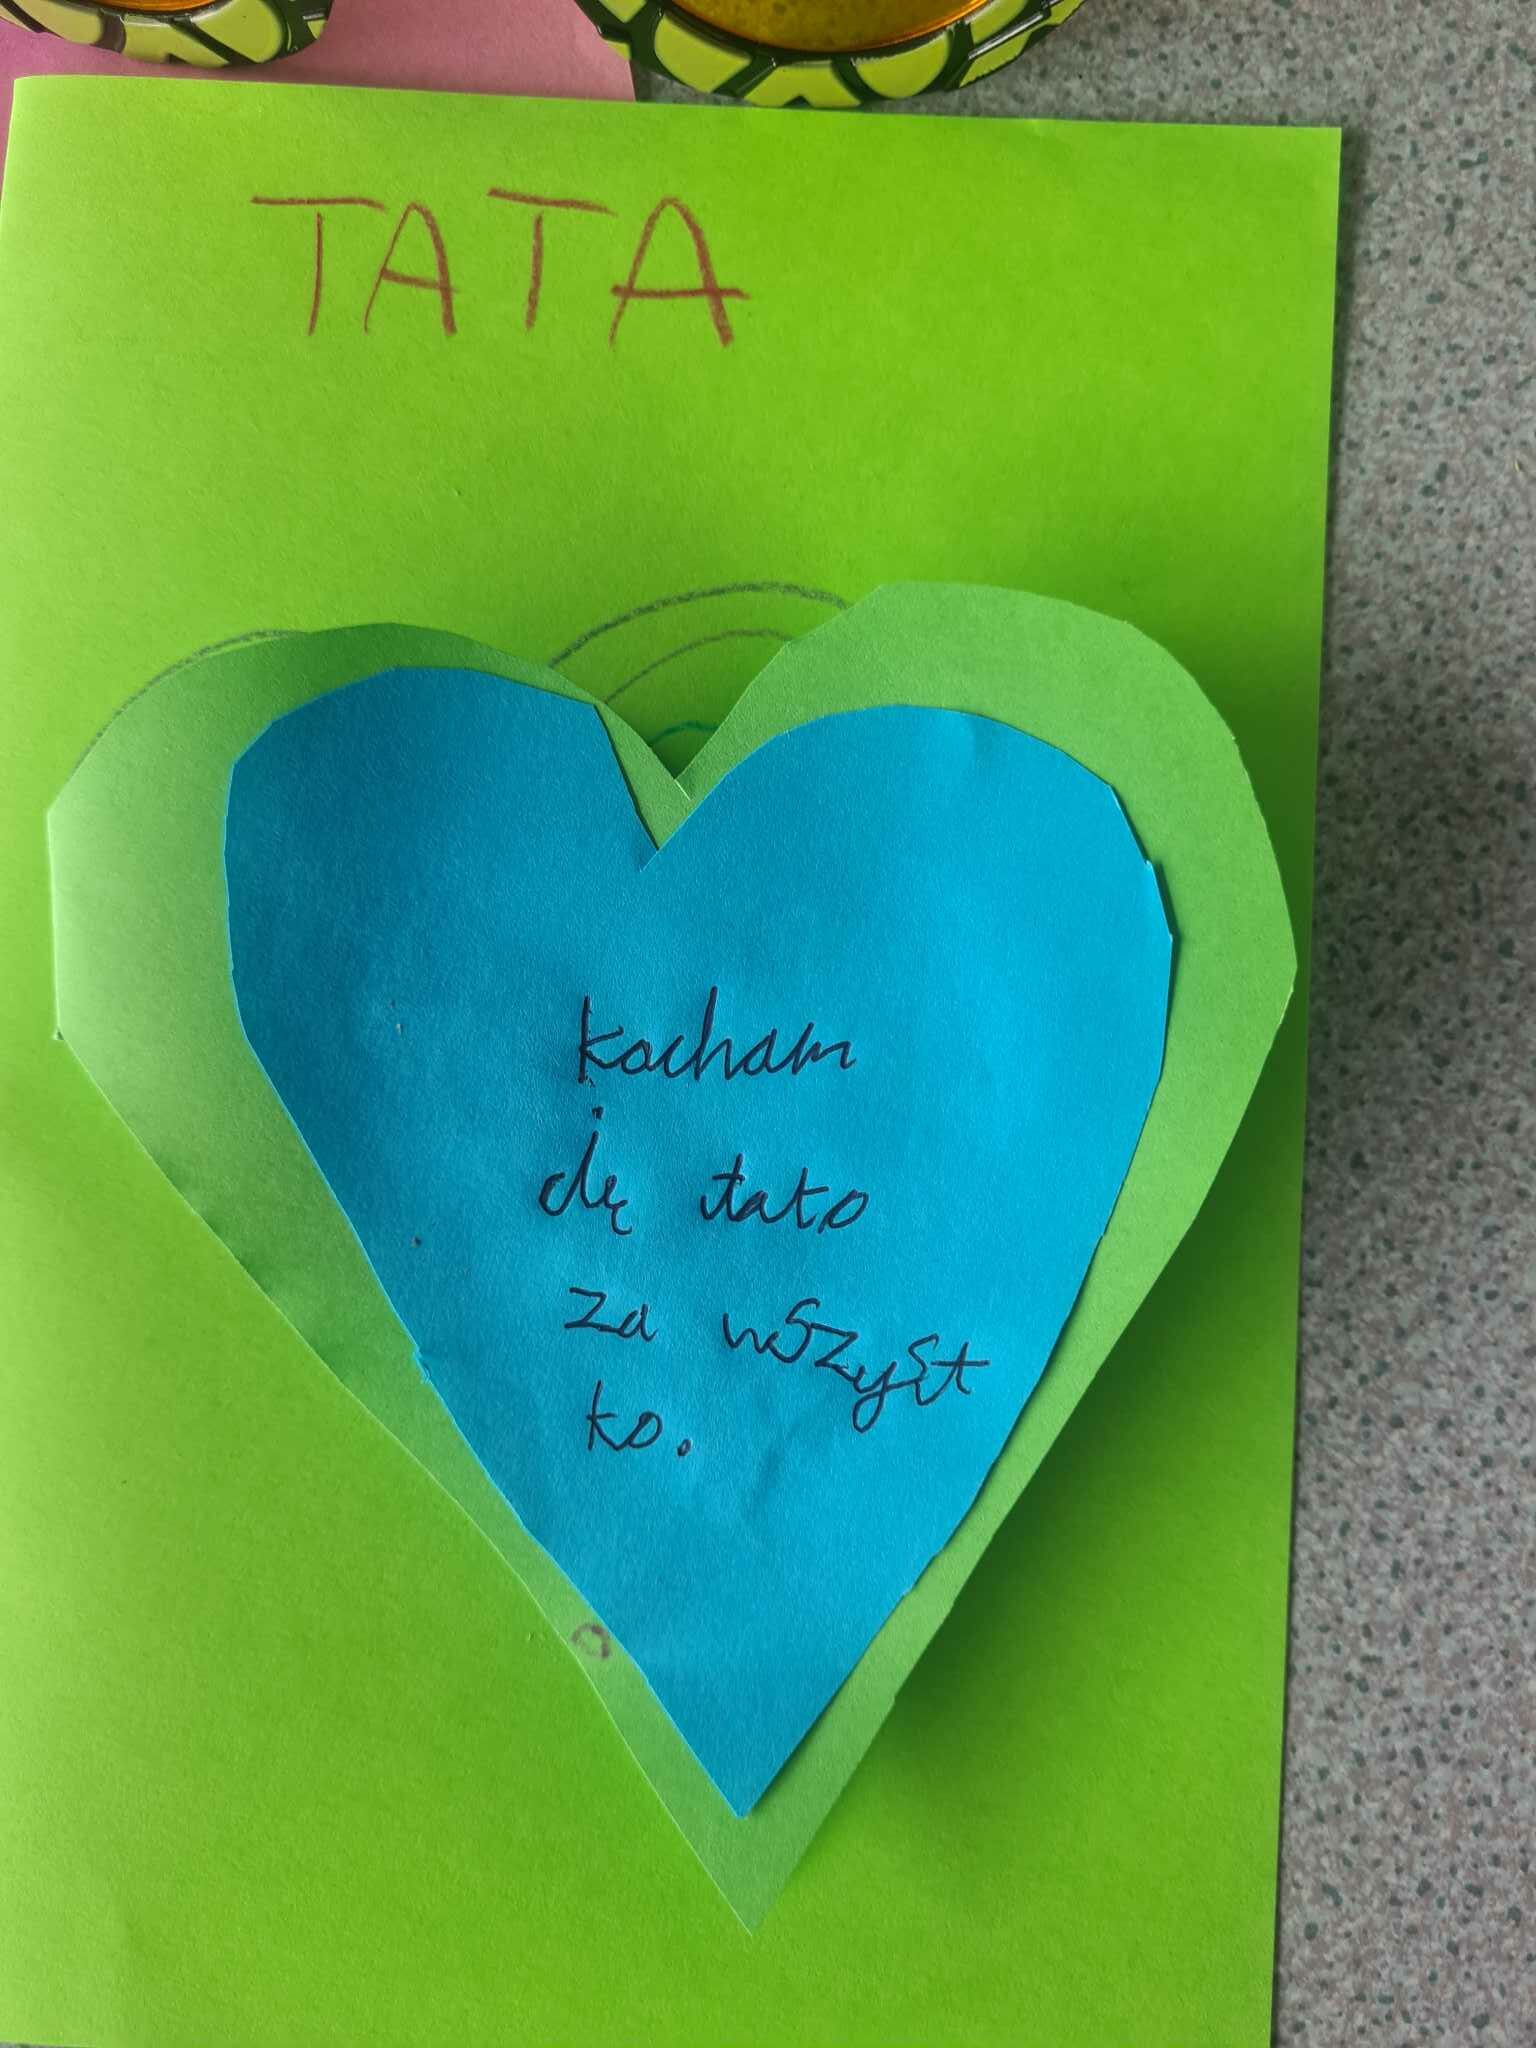 TATA
kocham
cię tato
za wszyst
ko.